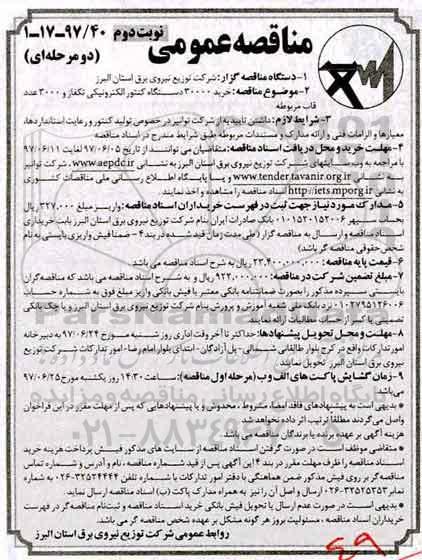 مناقصه عمومی
نوبت دوم ۹۷/۴۰-۱۷-۱
(دو مرحله‌ای)
۱- دستگاه مناقصه گزار: شرکت توزیع نیروی برق استان البرز
۲- موضوع مناقصه: خرید ۳۰۰۰۰ دستگاه کنتور الکترونیکی تکفاز و ۳۰۰۰ عدد
قاب مربوطه
۳- شرایط لازم: داشتن تاییدیه از شرکت توانیر در خصوص تولید کنتور و رعایت استانداردها،
معیارها و الزامات فنی و ارائه مدارک و مستندات مربوطه طبق شرایط مندرج در اسناد مناقصه
۴- مهلت خرید و محل دریافت اسناد مناقصه: متقاضیان می توانند از تاریخ ۹۷/۰۶/۰۵ لغایت ۹۷/۰۶/۱۱
با مراجعه به وب سایتهای شرکت توزیع نیروی برق استان البرز به نشانی www.aepdc.ir، شرکت توانیر
به نشانی www.tender.tavanir.org.ir و یا پایگاه اطلاع رسانی ملی مناقصات کشوری
به نشانی http://iets.mporg.ir اسناد مناقصه را مشاهده و اخذ نمایند.
۵- مدارک مورد نیاز جهت ثبت در فهرست خریداران اسناد مناقصه: واریز مبلغ ۳۲۷,۰۰۰ ریال
بحساب سپهر ۰۱۰۱۵۲۰۱۵۲۰۰۶ بانک صادرات ایران بنام شرکت توزیع نیروی برق استان البرز بابت خریداری
اسناد مناقصه و ارسال به مناقصه گزار (طی مدت زمان قید شده در بند ۴- ضمنا فیش واریزی بایستی به نام
شخص حقوقی مناقصه گر باشد)
۶- قیمت پایه مناقصه: ۲۳,۴۰۰,۰۰۰,۰۰۰ ریال به شرح اسناد مناقصه می باشد
۷- مبلغ تضمین شرکت در مناقصه: ۹۲۲,۰۰۰,۰۰۰ ریال و به شرح اسناد مناقصه می باشد که مناقصه گران
بایستی سپرده مذکور را بصورت ضمانتنامه بانکی معتبر یا فیش بانکی واریز مبلغ فوق به شماره حساب
۰۱۰۲۷۹۵۱۲۶۰۰۶ نزد بانک ملی شعبه آموزش و پرورش بنام شرکت توزیع نیروی برق استان البرز و یا چک بانکی
تضمینی یا کسر از محل مطالبات ارائه نمایند.
۸- مهلت و محل تحویل پیشنهادها: حداکثر تا آخر وقت اداری روز شنبه مورخ ۹۷/۰۶/۲۴ به دبیرخانه
امور تدارکات واقع در کرج بلوار طالقانی شمالی- پل آزادگان- ابتدای بلوار امام رضا- امور تدارکات شرکت توزیع
نیروی برق استان البرز تحویل نمایند.
۹- زمان گشایش پاکت های الف و ب (مرحله اول مناقصه): ساعت ۱۴:۳۰ روز یکشنبه مورخ ۹۷/۰۶/۲۵
می‌باشد.
* بدیهی است به پیشنهادهای فاقد امضا، مشروط، مخدوش و یا پیشنهادهایی که پس از مهلت مقرر در این فراخوان
واصل می گردند مطلقا ترتیب اثر داده نخواهد شد.
هزینه آگهی بر عهده برنده یا برندگان مناقصه می باشد.
* متقاضی موظف است در صورت گرفتن اسناد مناقصه از سایت های مذکور فیش پرداخت هزینه خرید
اسناد مناقصه را ظرف مهلت مقرر در بند ۴ این آگهی پس از قید شماره مناقصه، نام و آدرس و شماره تماس
مناقصه گر بر روی فیش مذکور ضمن هماهنگی با دفتر امور تدارکات با شماره تلفن ۳۲۵۳۴۴۴۴-۰۲۶ به شماره
نمابر ۳۲۵۲۵۳۵۳-۰۲۶ ارسال و اصل آن را نیز به همراه مدارک پاکت (ب) اسناد مناقصه ارسال نماید.
* بدیهی است در صورت عدم ارسال یا تحویل فیش بانکی خرید اسناد مناقصه و ثبت نام مناقصه گر در فهرست
خریداران اسناد مناقصه، مسئولیت بروز هر گونه مشکل بر عهده شخص مناقصه گر می باشد.
روابط عمومی شرکت توزیع نیروی برق استان البرز
۴۹
۰۲۱-۸۸۳۴۹۶۷۰